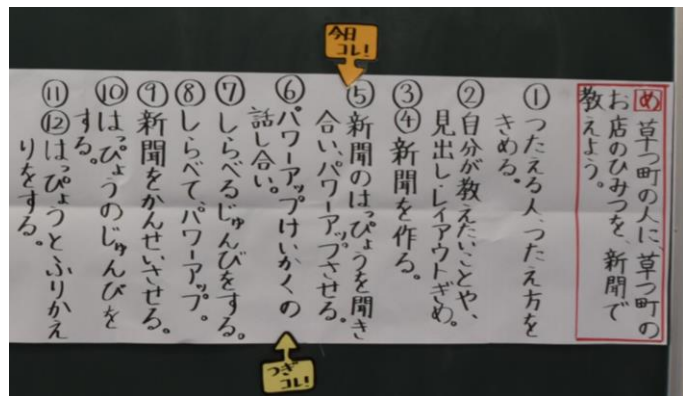 今日
コレ!
め 草つ町の人に、草つ町の
お店のひみつを、新聞で
教えよう。
① つたえる人、つたえ方を
きめる。
② 自分が教えたいことや、
見出し・レイアウトぎめ。
③④ 新聞を作る。
⑤ 新聞のはっぴょうを聞き
合い、パワーアップさせる。
⑥ パワーアップけいかくの
話し合い。
⑦ しらべるじゅんびをする。
⑧ しらべて、パワーアップ。
⑨ 新聞をかんせいさせる。
⑩ はっぴょうのじゅんびを
する。
⑪⑫ はっぴょうとふりかえ
りをする。
つぎ
コレ!